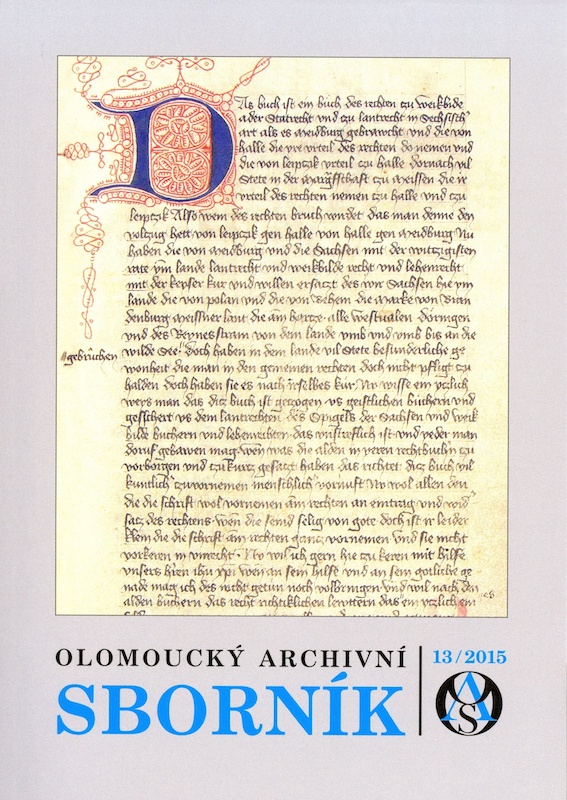 Das buch ist ein buch des rechten czu weikbilde
ader Statrecht und czu lantrecht in Sechsisch
art als es meidburg gebrawcht und die von
halle die yre urteil des rechten do nemen und
die von leipczk urteil czu halle dornach vil
Stete in der marggraffschaft czu meissen die ir
urteil des rechten nemen czu halle und czu
leipczk Also wem des rechten bruch wurdet das man denne den
volczug hett von leipczk gen halle von halle gen meidburg Nu
haben die von meidburg und die Sachsen mit der wiczigisten
rate ym lande lantrecht und weikbilde recht und lehenrecht
mit der keyser kur und willen ersaczt des wir Sachsen hie ym
lande die von polan und die von behem die marke von Bran
denburg meissner lant die am harcze alle westualen döringen
und des Reynesstram von dem lande umb und umb bis an die
wilde See doch haben in dem lande vil Stete besunderliche ge
gebruchen
wonheit die man in den gemeinen rechten doch nicht pfligt czu
halden doch haben sie es nach irselbes kur Nu wisse ein yczlich
wers man das dicz buch ist geczogen us geistlichen büchern und
gesichert us dem lantrechten des Spigels der Sachsen und weik
bilde buchern und lehenrechten das unstreflich ist und yeder man
doruf gebawen mag wen was die alden in yeren rechtbuchn czu
vorborgen und czu kurcz gesaczt haben das richtet dicz buch vil
kuntlich czuvornemen menschlich vornuft Nu wol allen den
die die schrift wol vornemen am rechten an eintrag und wid
sacz des rechtens wen die seind selig von gote doch ist ir leider
klein die die schrift am rechten gancz vornemen und sie nicht
vorkeren in unrecht Nu wil ich gern hie czu keren mit hilfe
unsers hren ihu xpi wen an sein hilfe und an sein gotliche ge
nade mag ich des nicht getun noch volbringen und wil nach den
alden büchern das recht richtiklichen lewttern das ein yczlich em
OLOMOUCKÝ ARCHIVNÍ
SBORNÍK
13/2015